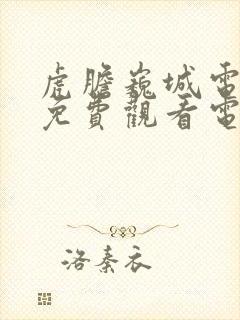 虎膽巍城電
免費觀看電
洛秦衣